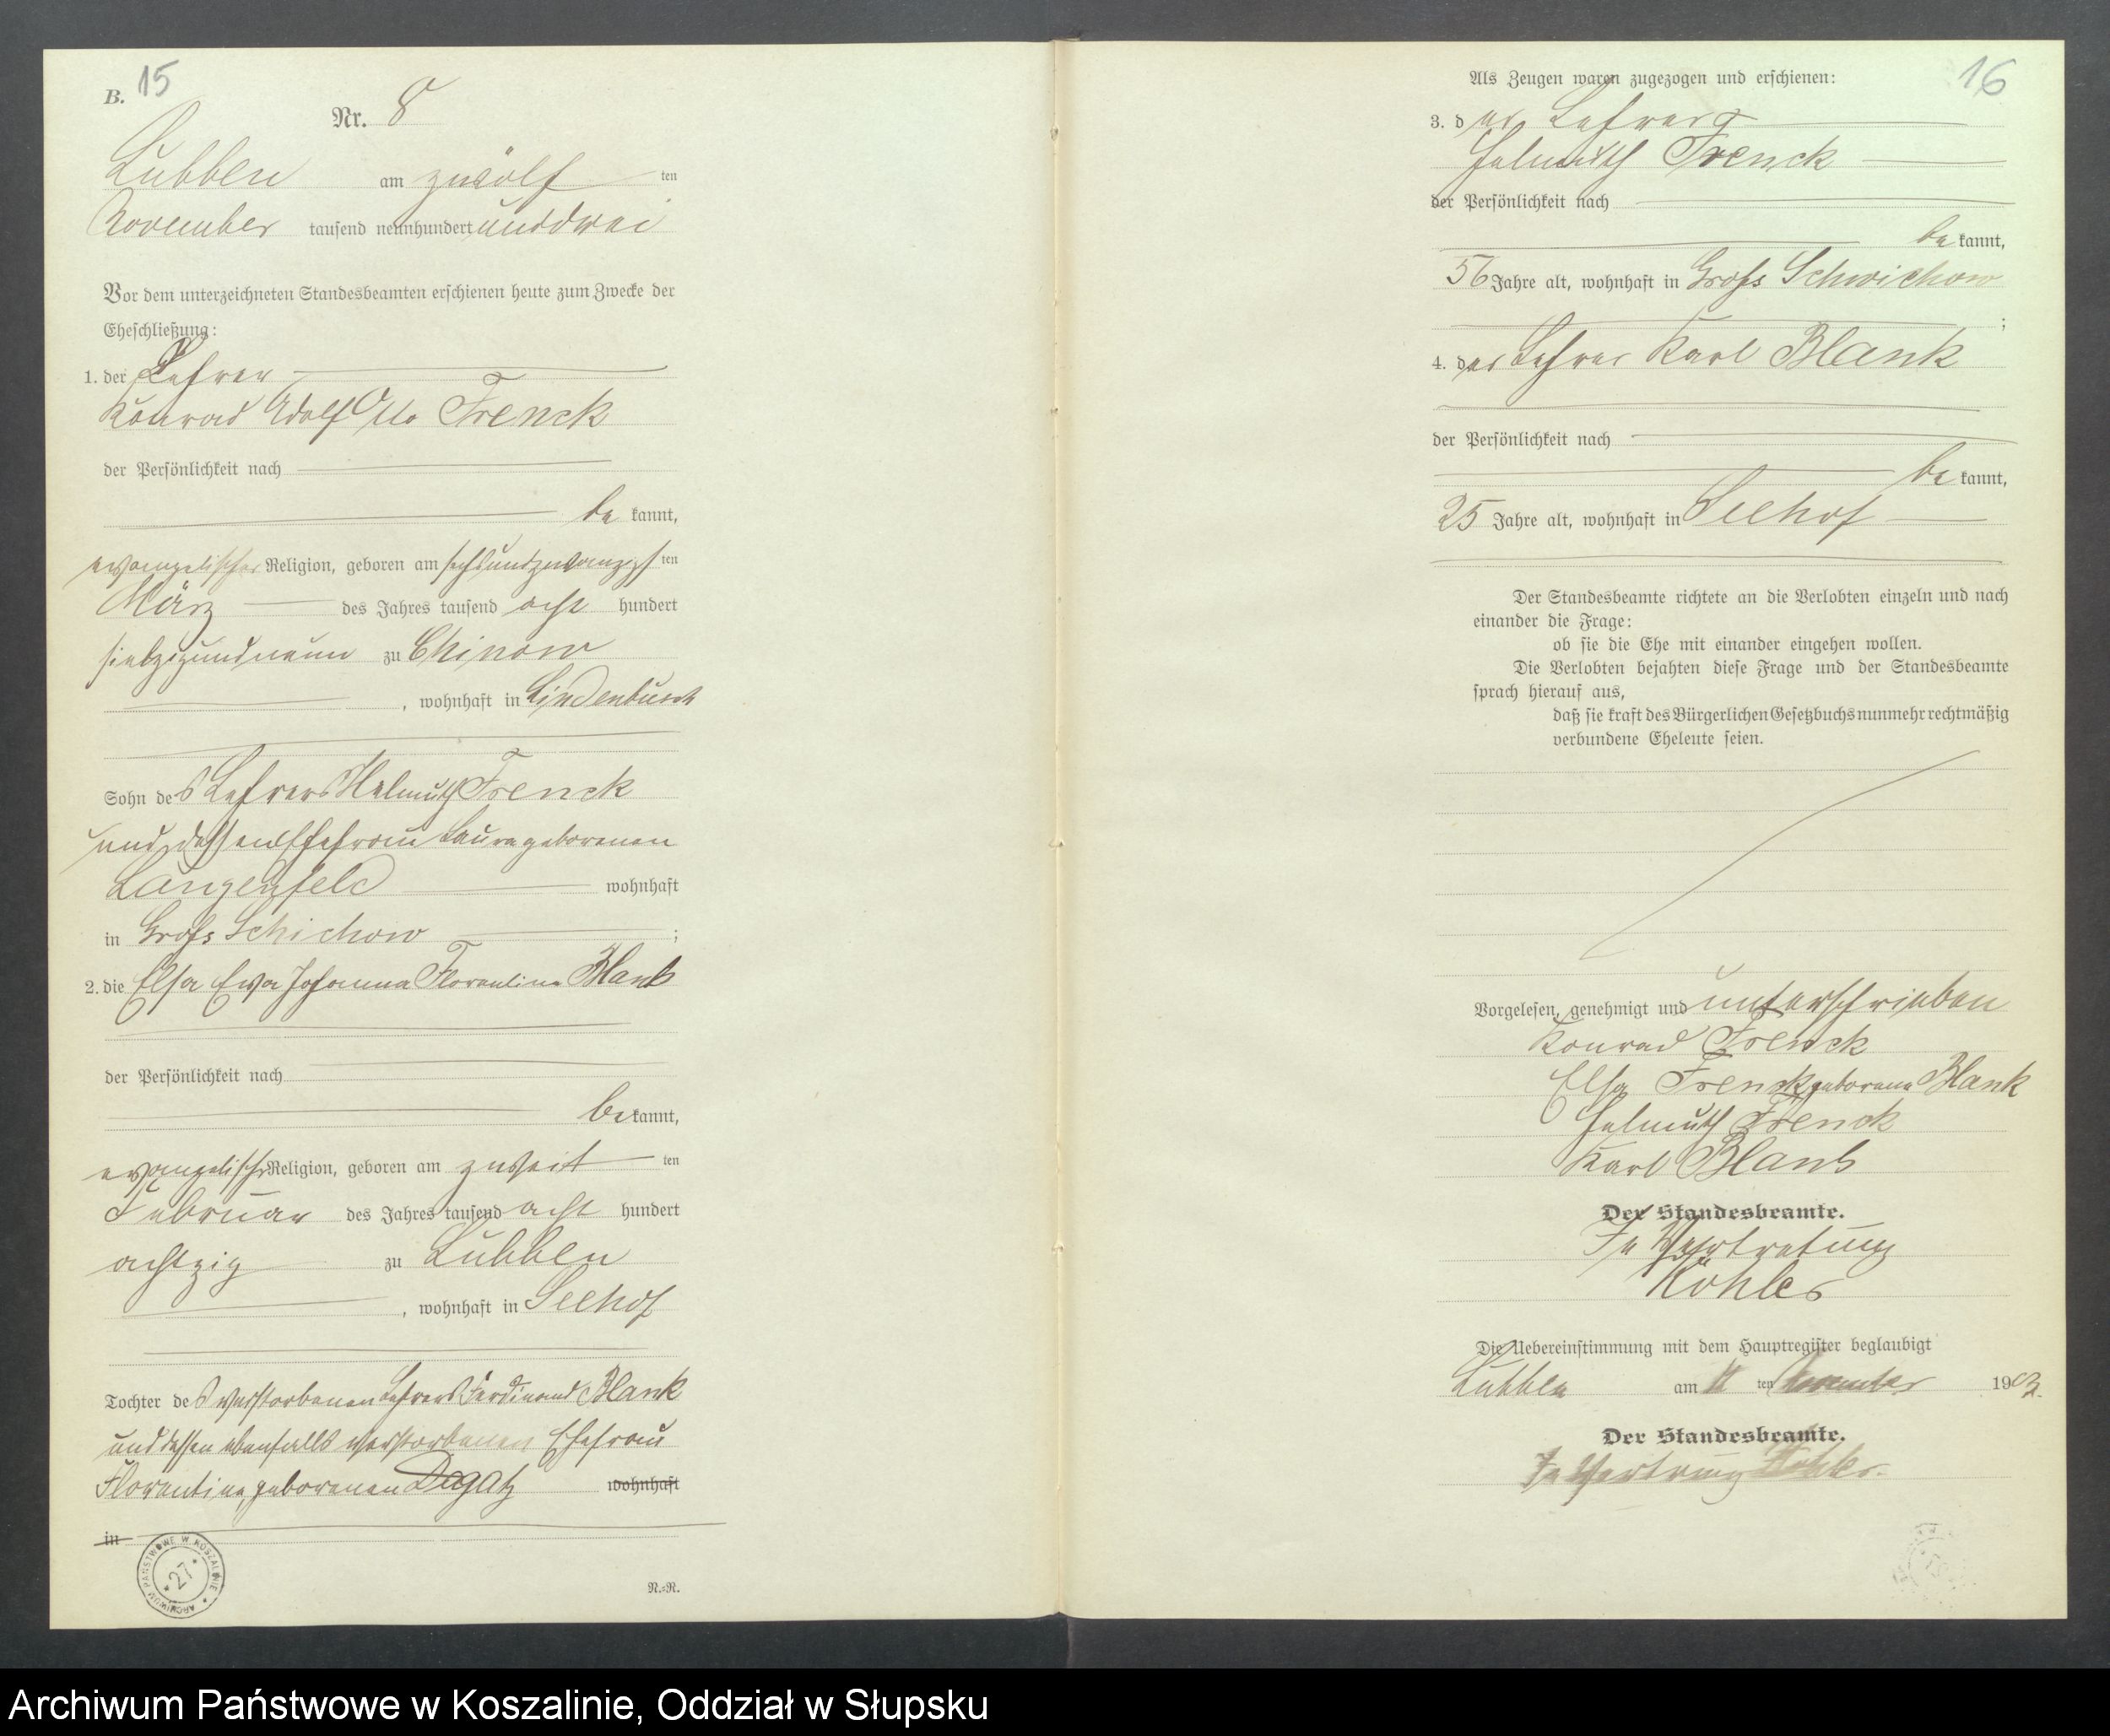 B. 15
Nr. 8
Lubben am zwölf ten
November tausend neunhundert und drei
Vor dem unterzeichneten Standesbeamten erschienen heute zum Zwecke der
Eheschließung:
1. der Lehrer
Konrad Adolf Otto Frenck
der Persönlichkeit nach
be kannt,
evangelischer Religion, geboren am sechsundzwanzigs ten
März des Jahres tausend acht hundert
siebzigundneun zu Chinow
, wohnhaft in Lindenbusch
Sohn des Lehrers Helmuth Frenck
und dessen Ehefrau Laura geborenen
Langenfeld wohnhaft
in Groß Schichow ;
2. die Elsa Ewa Johanna Florentine Blank
der Persönlichkeit nach
be kannt,
evangelischer Religion, geboren am zweit ten
Februar des Jahres tausend acht hundert
achtzig zu Lubben
, wohnhaft in Seehof
Tochter des verstorbenen Lehrers Ferdinand Blank
und dessen ebenfalls verstorbenen Ehefrau
Florentine, geborenen Dogatz wohnhaft
in
ARCHIWUM PAŃSTWOWE W KOSZALINIE * 27 *
N.=R.
16
Als Zeugen waren zugezogen und erschienen:
3. der Lehrer
Helmuth Frenck
der Persönlichkeit nach
be kannt,
56 Jahre alt, wohnhaft in Groß Schwichow
;
4. der Lehrer Karl Blank
der Persönlichkeit nach
be kannt,
25 Jahre alt, wohnhaft in Seehof
Der Standesbeamte richtete an die Verlobten einzeln und nach
einander die Frage:
ob sie die Ehe mit einander eingehen wollen.
Die Verlobten bejahten diese Frage und der Standesbeamte
sprach hierauf aus,
daß sie kraft des Bürgerlichen Gesetzbuchs nunmehr rechtmäßig
verbundene Eheleute seien.
Vorgelesen, genehmigt und unterschrieben
Konrad Frenck
Elsa Frenck geborene Blank
Helmuth Frenck
Karl Blank
Der Standesbeamte.
In Vertretung
Köhler
Die Uebereinstimmung mit dem Hauptregister beglaubigt
Lubben am ten November 1903.
Der Standesbeamte.
In Vertretung Köhler.
Archiwum Państwowe w Koszalinie, Oddział w Słupsku